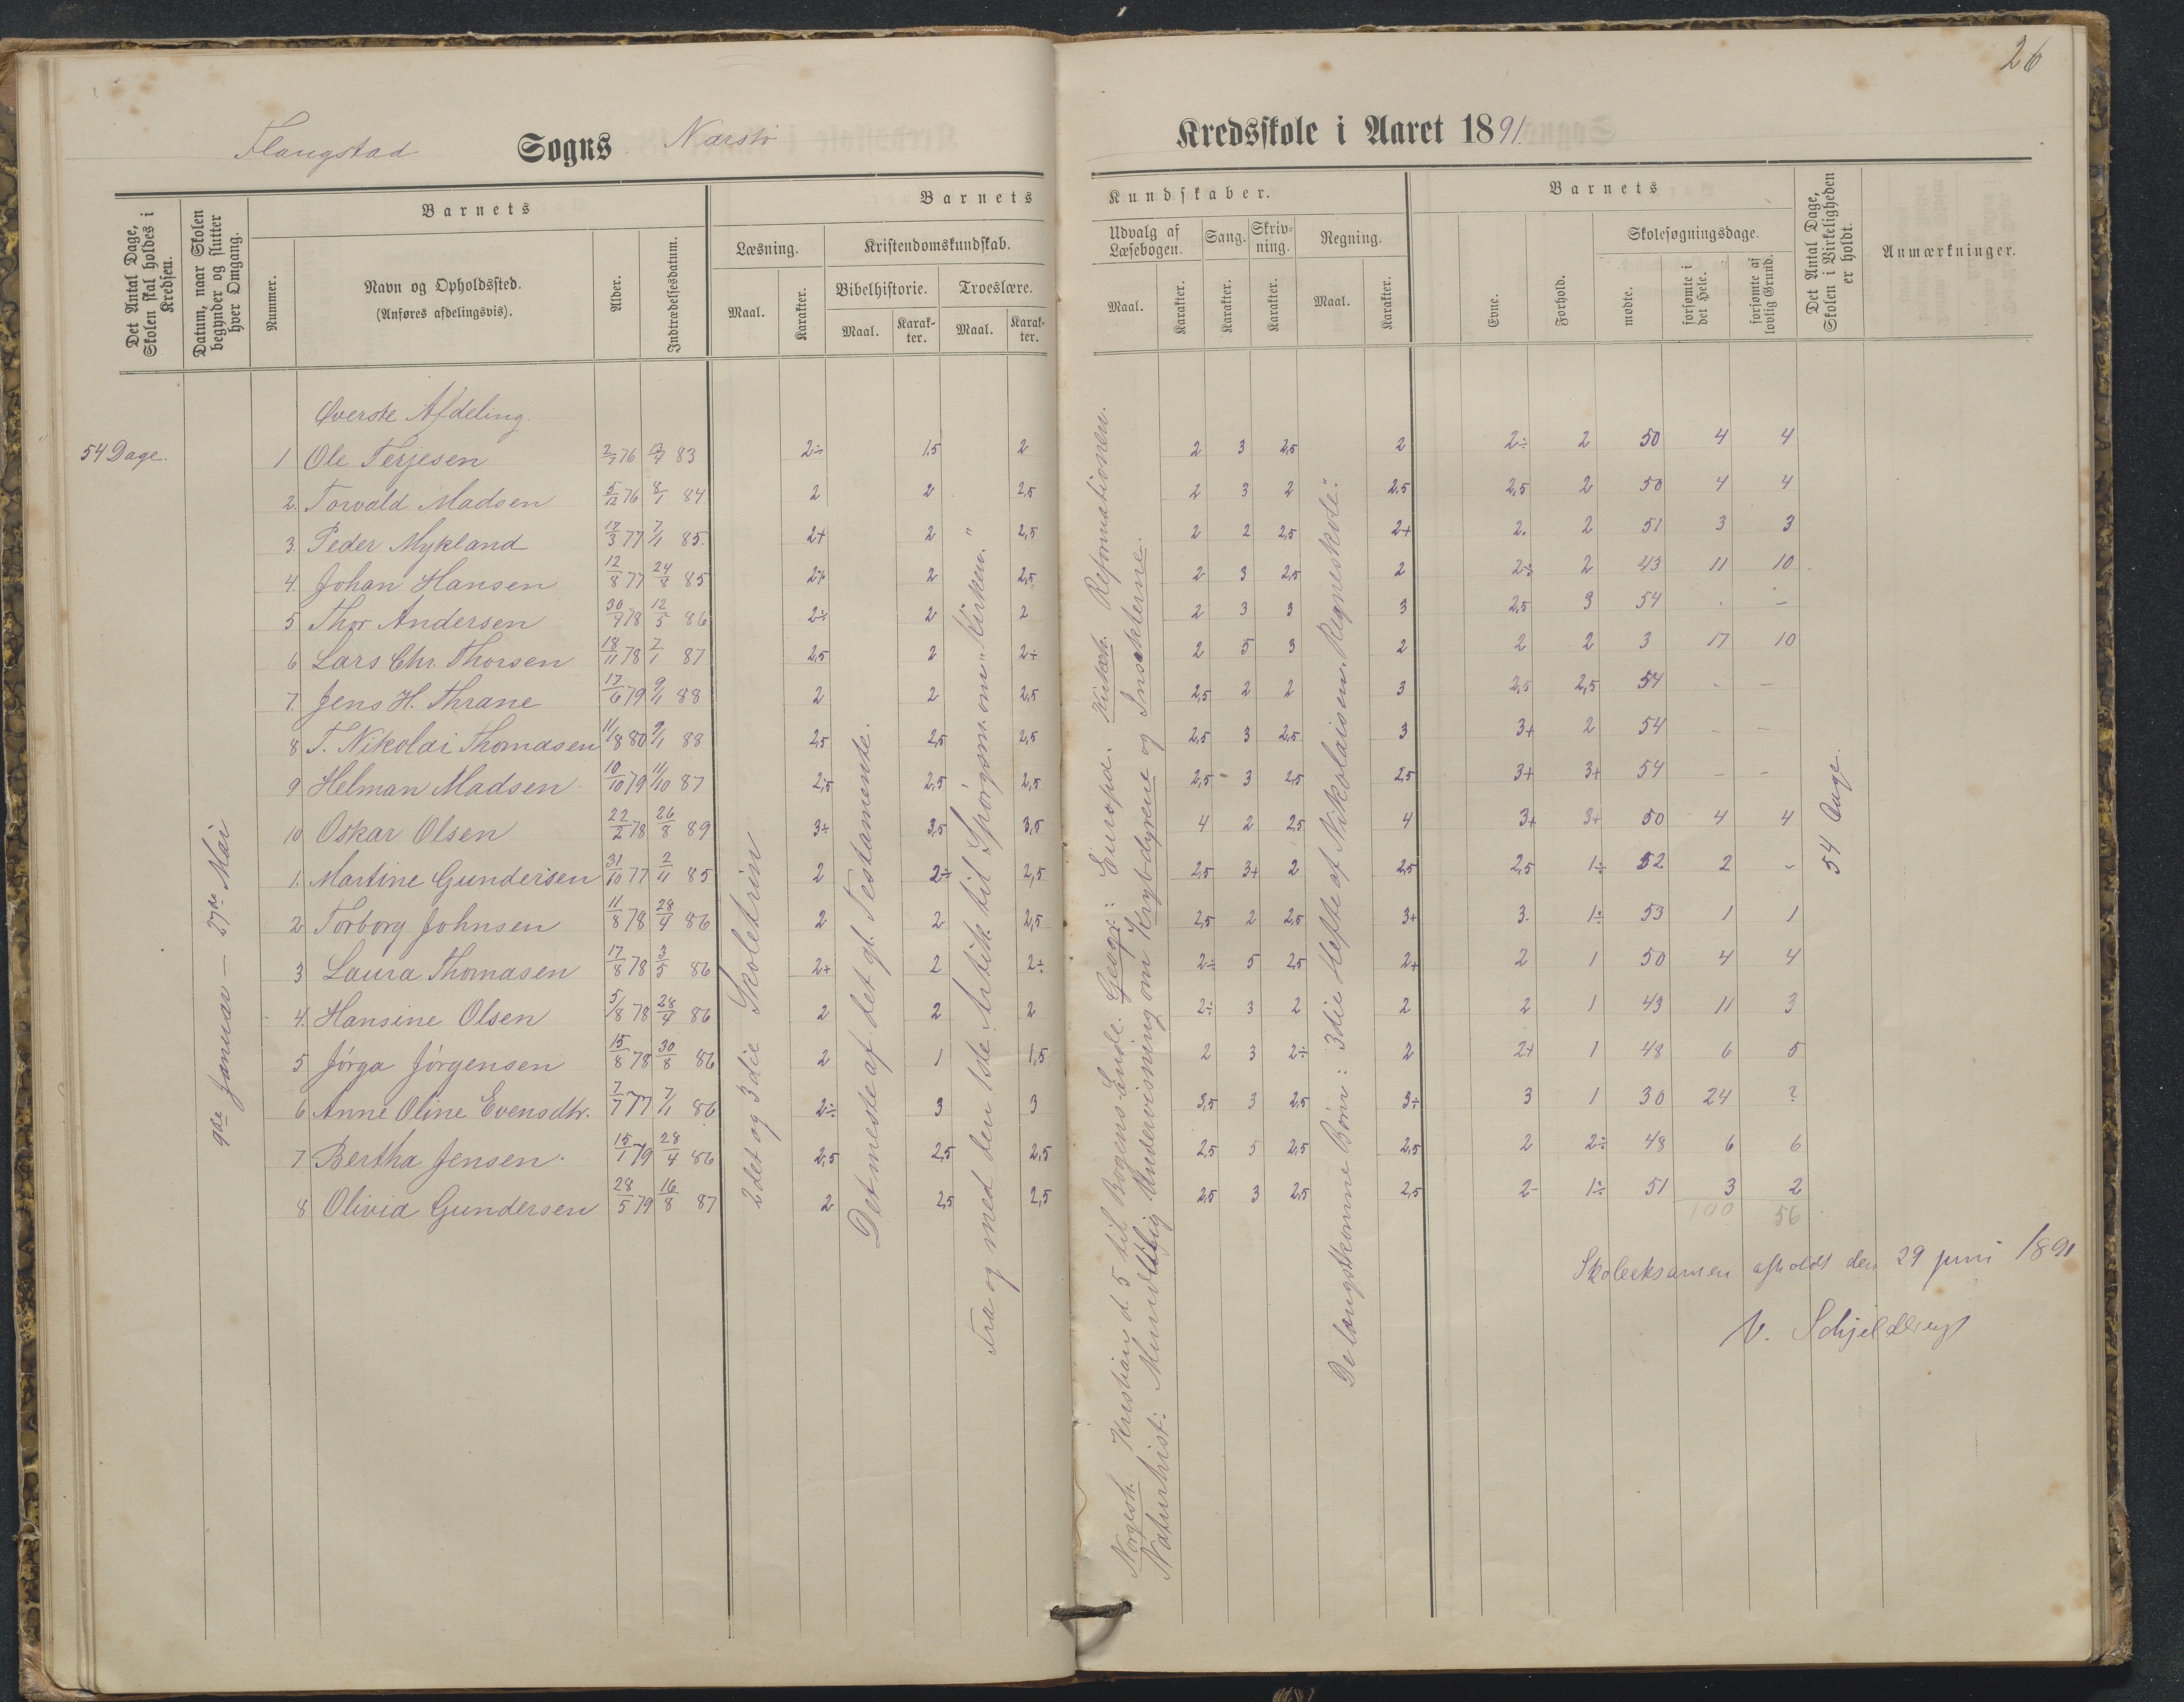 26
Flangstad Sogns Narstø Kredsskole i Aaret 1891.
Det Antal Dage, Skolen skal holdes i Kredsen.
Datum, naar Skolen begynder og slutter hver Omgang.
Barnets
Nummer.
Navn og Opholdssted.
(Anføres afdelingsvis).
Alder.
Indtrædelsesdatum.
Barnets Kundskaber.
Læsning.
Maal. Karakter.
Kristendomskundskab.
Bibelhistorie. Troeslære.
Maal. Karakter. Maal. Karakter.
Udvalg af Læsebogen.
Maal. Karakter.
Sang.
Karakter.
Skrivning.
Karakter.
Regning.
Maal. Karakter.
Barnets
Evne.
Forhold.
Skolesøgningsdage.
mødte.
forsømte i det Hele.
forsømte af lovlig Grund.
Det Antal Dage, Skolen i Virkeligheden er holdt.
Anmærkninger.
Øverste Afdeling.
54 Dage.
9de Januar – 27de Mai
1 Ole Terjesen 2/7 76 13/4 83 2÷ 1.5 2 2 3 2,5 2 2÷ 2 50 4 4
2. Torvald Madsen 5/12 76 8/1 84 2 2 2,5 2 3 2 2,5 2,5 2 50 4 4
3. Peder Mykland 17/3 77 7/1 85. 2+ 2 2,5 2 2 2,5 2+ 2. 2 51 3 3
4. Johan Hansen 12/8 77 24/8 85 2+ 2 2,5 2 3 2,5 2 2÷ 2 43 11 10
5 Thor Andersen 30/9 78 12/5 86 2÷ 2 2 2 3 3 3 2,5 3 54 . –
6 Lars Chr. Thorsen 18/11 78 7/1 87 2,5 2 2+ 2 5 3 2 2 2 3 17 10
7. Jens H. Thrane 17/6 79 9/1 88 2 2 2,5 2,5 2 2 3 2,5 2,5 54 - –
8 T. Nikolai Thomasen 11/8 80 9/1 88 2,5 2,5 2,5 2,5 3 2,5 3 3+ 2 54 - –
9 Helman Madsen 10/10 79 11/10 87 2,5 2,5 2,5 2,5 3 2,5 2,5 3+ 3+ 54 – –
10 Oskar Olsen 22/2 78 26/8 89 3÷ 3,5 3,5 4 2 2,5 4 3+ 3+ 50 4 4
1. Martine Gundersen 31/10 77 2/11 85 2 2÷ 2,5 2,5 3+ 2 2,5 2,5 1÷ 52 2 -
2 Torborg Johnsen 11/8 78 28/4 86 2 2 2,5 2,5 2 2,5 3+ 3. 1÷ 53 1 1
3 Laura Thomasen 17/8 78 3/5 86 2+ 2 2÷ 2÷ 5 2,5 2+ 2 1 50 4 4
4. Hansine Olsen 5/8 78 28/4 86 2 2 2 2÷ 3 2 2 2 1 43 11 3
5 Jörga Jörgensen 15/8 78 30/8 86 2 1 1,5 2 3 2÷ 2 2+ 1 48 6 5
6 Anne Oline Evensdtr. 7/7 77 7/1 86 2÷ 3 3 3,5 3 2,5 3÷ 3 1 30 24 ?
7 Bertha Jensen. 15/1 79 28/4 86 2,5 2,5 2,5 2,5 5 2,5 2,5 2 2÷ 48 6 6
8 Olivia Gundersen 28/5 79 16/8 87 2 2,5 2,5 2,5 3 2,5 2,5 2- 1÷ 51 3 2
100 56
2det og 3die Skoletrin
Det meste af det gl. Testamente.
Fra og med den 1ste Artikk. til Spørgsm. om "Kirken."
Norgesh. Kristian d. 5 til Bogens Ende. Geogr.: Europa. Kirkeh. Reformationen.
Naturhist: Mundtlig Undervisning om Krybdyrene og Insekterne.
De længstkomne Börn: 3die Hefte af Nikolaisens Regneskole.
54 Dage.
Skoleeksamen afholdt den 29 juni 1891
N. Schjeldberg